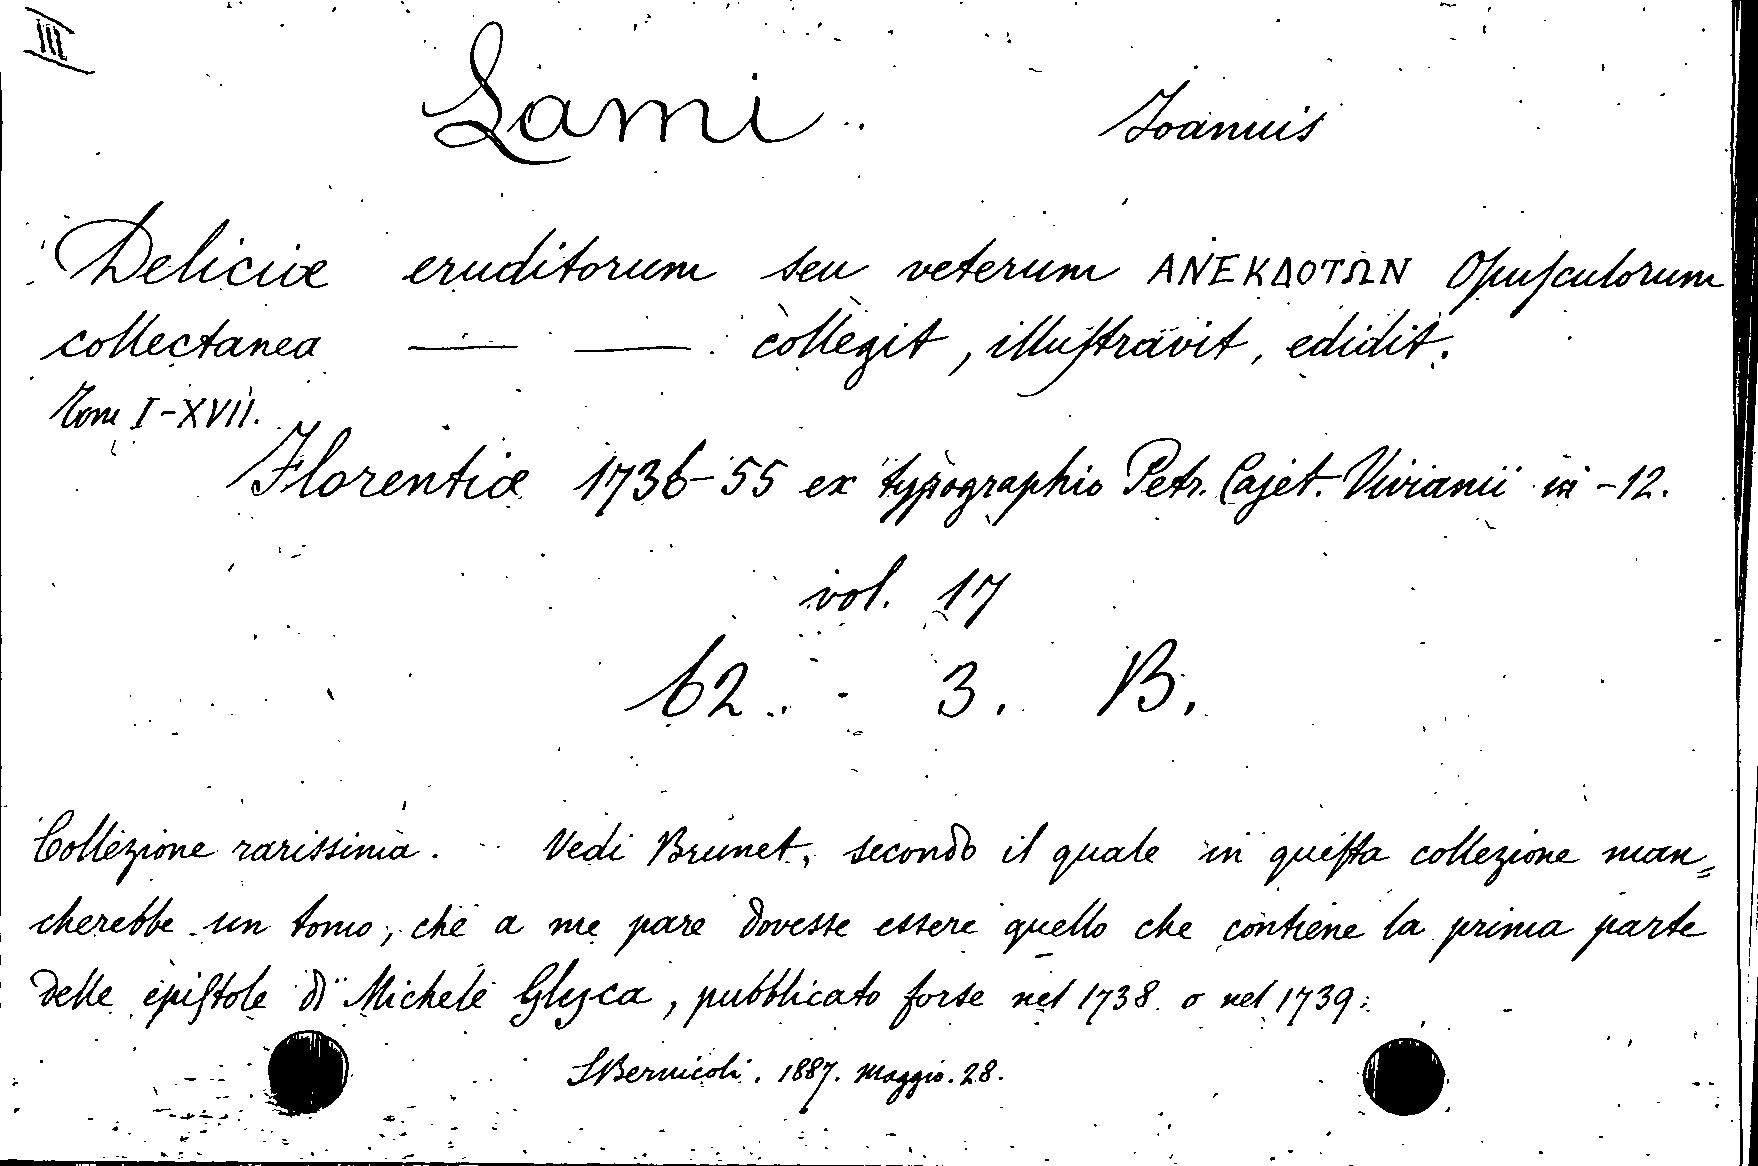 III
Lami Joannis
Deliciæ eruditorum seu veterum ΑΝΕΚΔΟΤΩΝ Opusculorum
collectanea — — collegit, illustravit, edidit.
Tom I-XVII.
Florentiæ 1736-55 ex typographio Petr. Cajet. Vivianii in -12.
vol. 17
62. - 3. B.
Collezione rarissima. Vedi Brunet, secondo il quale in questa collezione man=
cherebbe un tomo, che a me pare dovesse essere quello che contiene la prima parte
delle epistole di Michele Glyca, pubblicato forse nel 1738 o nel 1739.
SBernicoli. 1887. Maggio. 28.